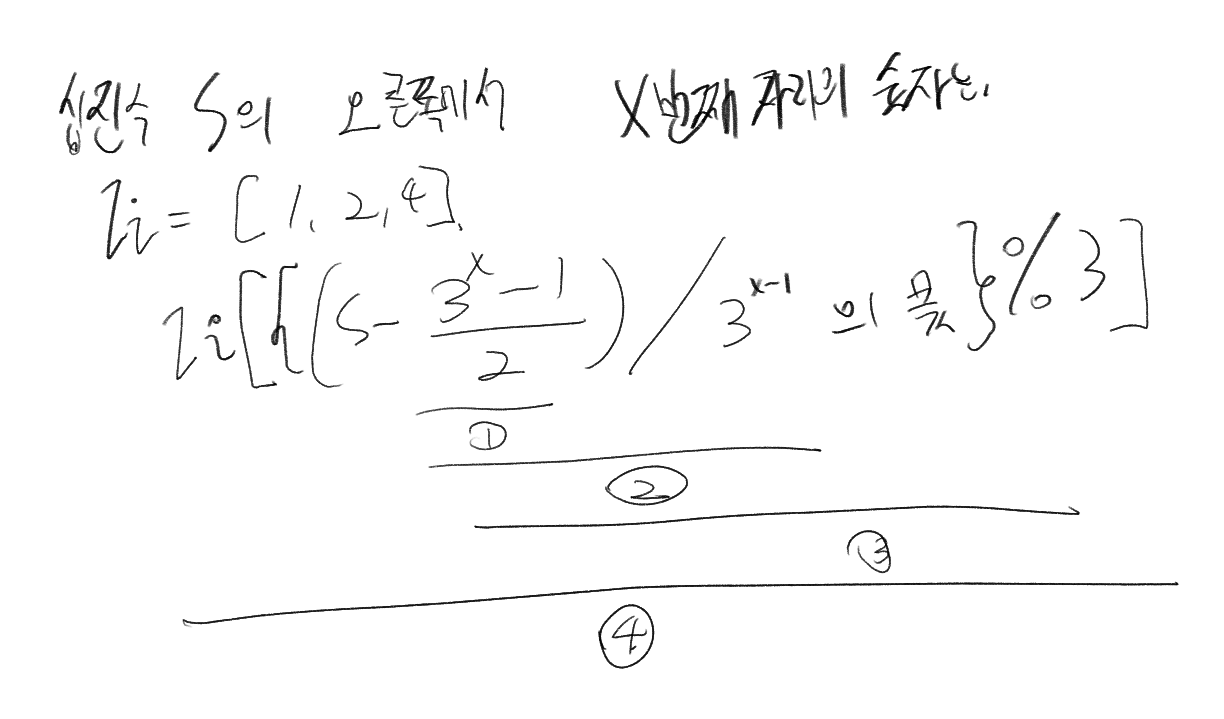 십진수 S의 오른쪽에서 X번째 자리의 숫자는,
li = [1, 2, 4].
li[{(S - (3^x - 1)/2) / 3^(x-1) 의 몫} % 3]
①
②
③
④